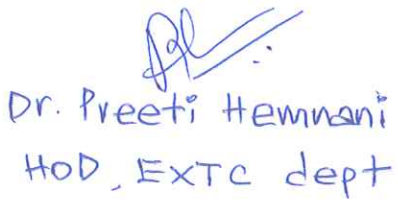 Dr. Preeti Hemnani
HOD, EXTC dept